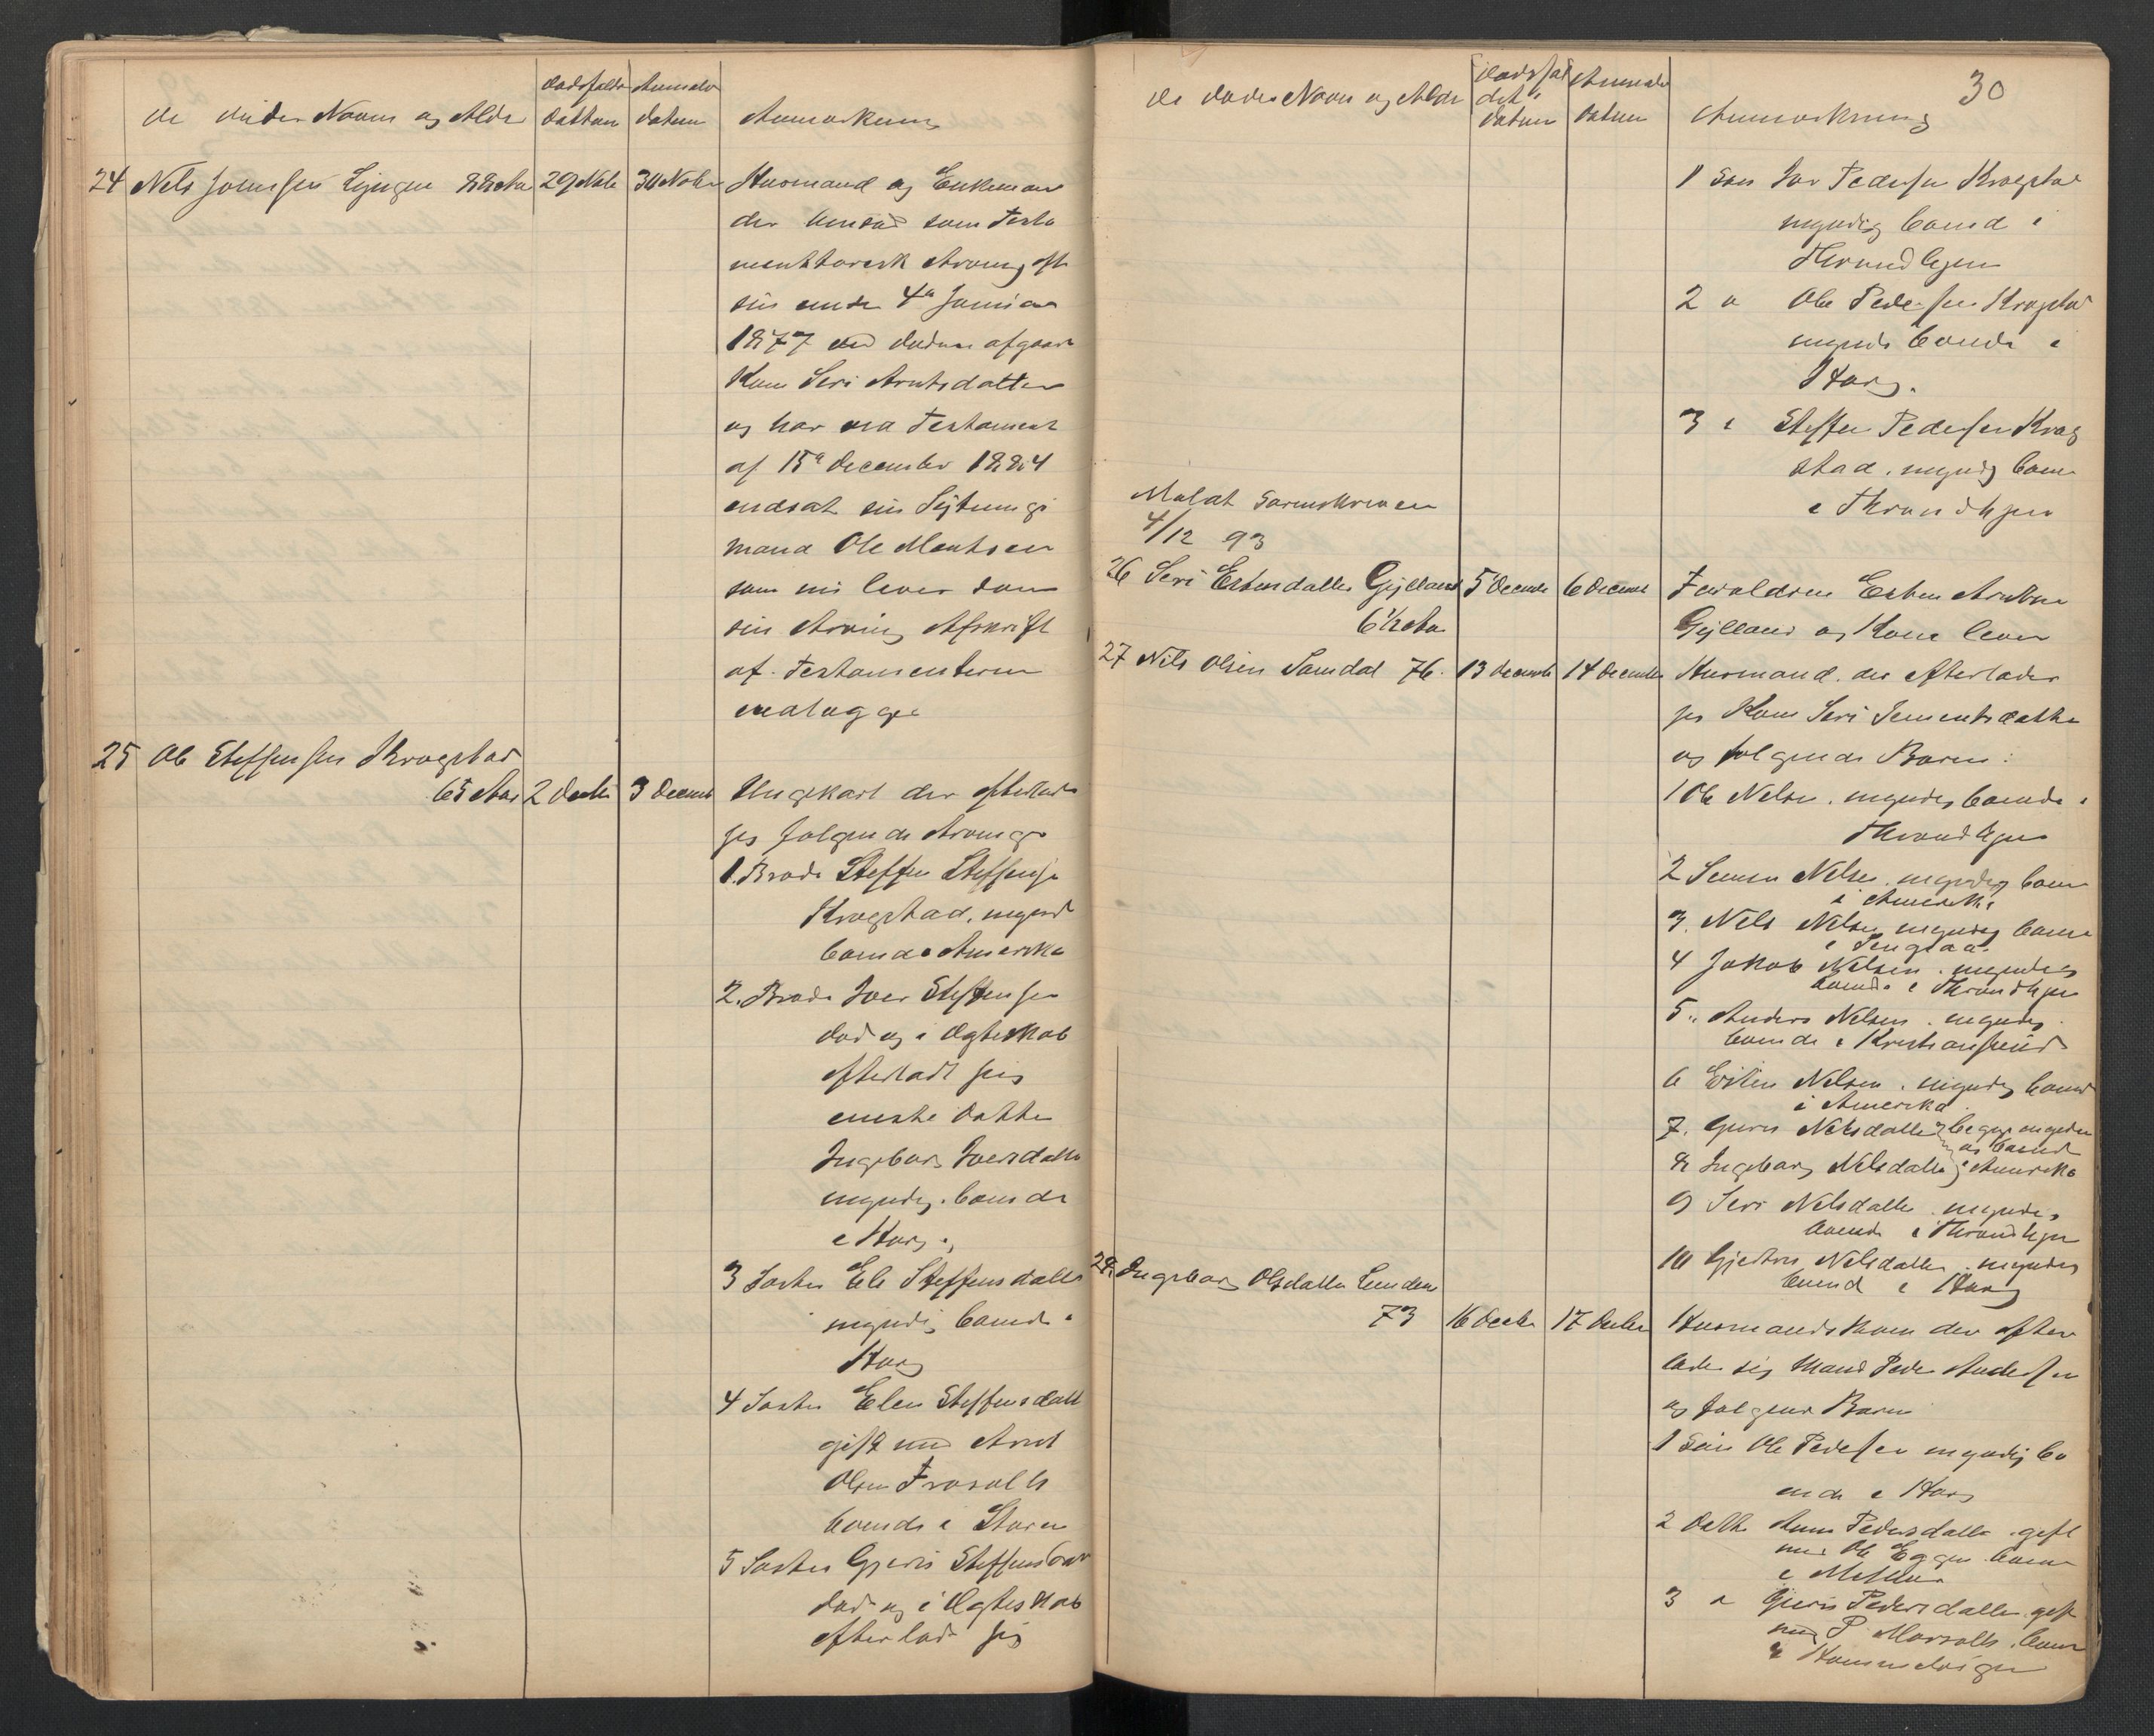 de døde Navn og Alde
dødsfalds
datum
Anmeld
datum
Anmærkning
24 Nels Johnsen 88 Aar 29 Nvbr 30 Novbr Husmand og Enkemand
der som Testa
mentarisk Arving efter
sin under 4a Januar
1877 ved døden afgaaede
Kone Seri Arntsdatter
og har ved Testament
af 15a December 1884
indsat sin
mand Ole
som nu lever som
sin Arving Afskrift
af Testamenterne
vedlægges
25 Ole Steffensen Krogstad
65 Aar 2 Decbr 3 Decemb Ungekarl der efterlader
sig følgende Arvinger
1. Broder Steffen Steffensen
Krogstad, myndig
boende Amerika
2. Broder Iver Steffensen
død og i Ægteskab
efterladt sig
eneste datter
Ingebor Iversdatter
myndig boende
i Horg
3 Søster Eli Steffensdatter
myndig boende i
Horg
4 Søster Elen Steffensdatt
gift med Arnt
Olsen
boende i Støren
5 Søster Gjeris Steffensdat
død og i Ægteskab
efterlad sig
30
de dødes Navn og Alder
dødsfal
dets
datum
Anmeld
datum
Anmærkning
1 Søn Iver Pedersen Krogstad
myndig boend i
Throndhjem
2 " Ole Pedersen Krogstad
myndig boende i
Horg.
3 " Steffen Pedersen Krog
stad. myndig boen
i Throndhjem
Meldt Sorenskriveren
4/12 93
26 Seri Estensdatter Gylland 5 Decembr 6 Decembr Forældrene Esten Arntsen
6 1/2 Aar Gylland og Kone lever
27 Nils Olsen Samdal 76. 13 decembr 14 decembr Husmand. der efterlader
sig Kone Seri Sementsdatter
og følgende Børn:
1 Ole Nelsen. myndig boende i
Throndhjem
2 Semen Nelsen. myndig boen
i Amerika
3. Nels Nelsen myndig boen
i
4 Jakob Nelsen. myndig
boende i Throndhjem
5. Anders Nelsen. myndig
boende i Kristiansund
6 Esten Nelsen. myndig boend
i Amerika
7. Guru Nelsdatter begge myndige
og boend
8 Ingeborg Nelsdatter i Amerika
9 Seri Nelsdatter. myndig
boende i Throndhjem
10 Gjertru Nelsdatter. myndig
boend i Horg
28. Ingeborg Olsdatter Lunden
73 16 Decbr 17 Decbr Husmandskone der efter
lader sig Mand Peder Andersen
og følgend Børn
1 Søn Ole Pedersen myndig bo
ende i Horg
2 Datter Anne Pedersdatter. gift
med Ole Eggen. boen
i Melhus
3 " Guru Pedersdatter. gift
med P. boen
i